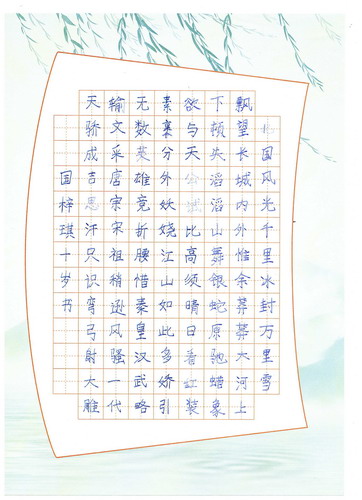 北国风光千里冰封万里雪
飘望长城内外惟余莽莽大河上
下顿失滔滔山舞银蛇原驰蜡象
欲与天公试比高须晴日看红装
素裹分外妖娆江山如此多娇引
无数英雄竞折腰惜秦皇汉武略
输文采唐宗宋祖稍逊风骚一代
天骄成吉思汗只识弯弓射大雕
国梓琪十岁书